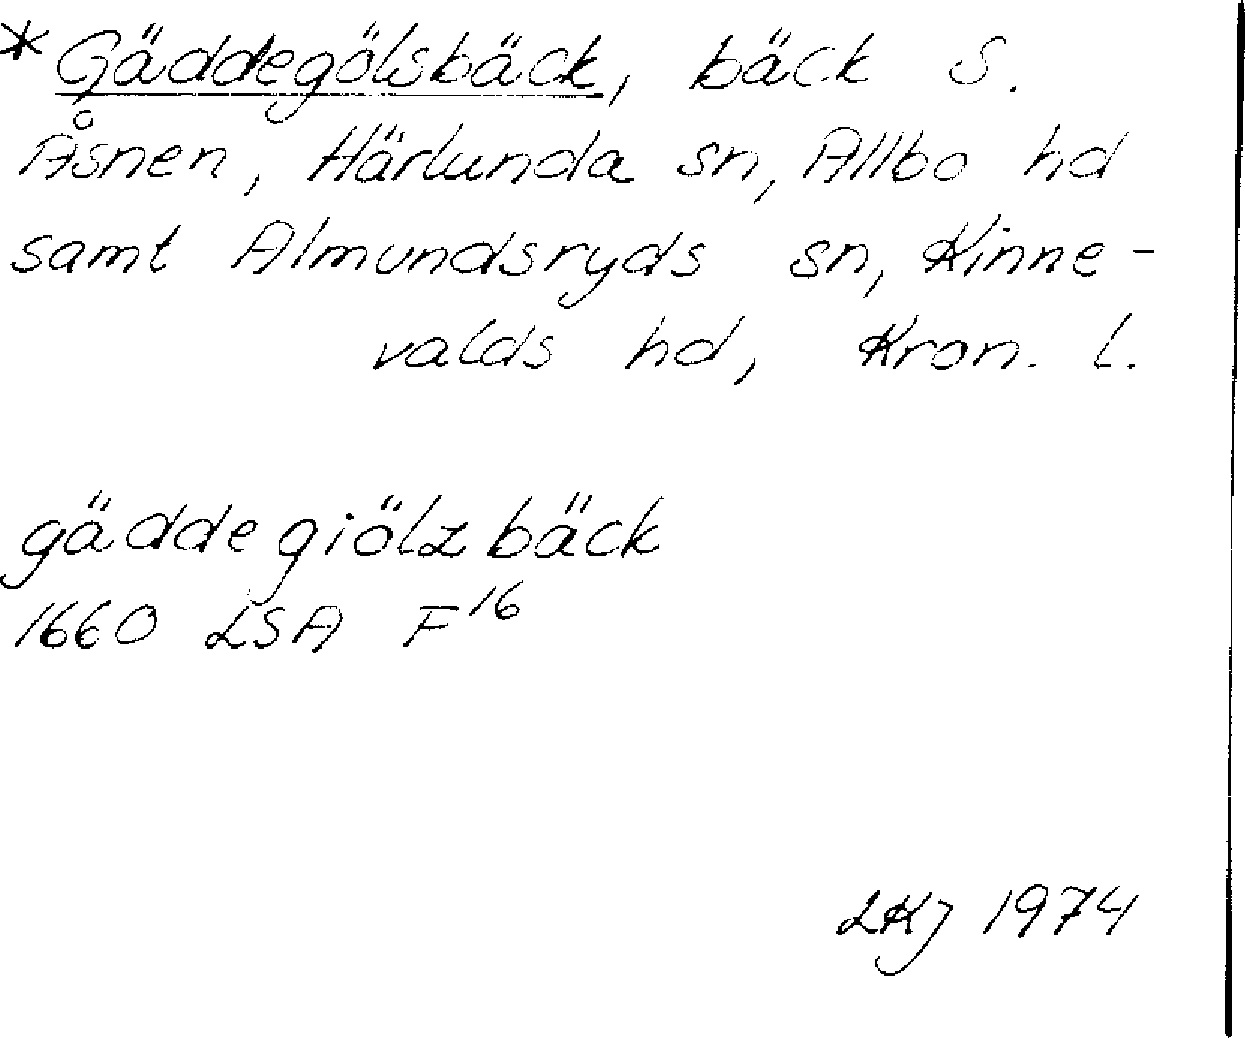 *Gäddegölsbäck, bäck S.
Åsnen, Härlunda sn, Allbo hd
samt Almundsryds sn, Kinne-
valds hd, Kron. l.
gäddegiölzbäck
1660 LSA F16
LKJ 1974